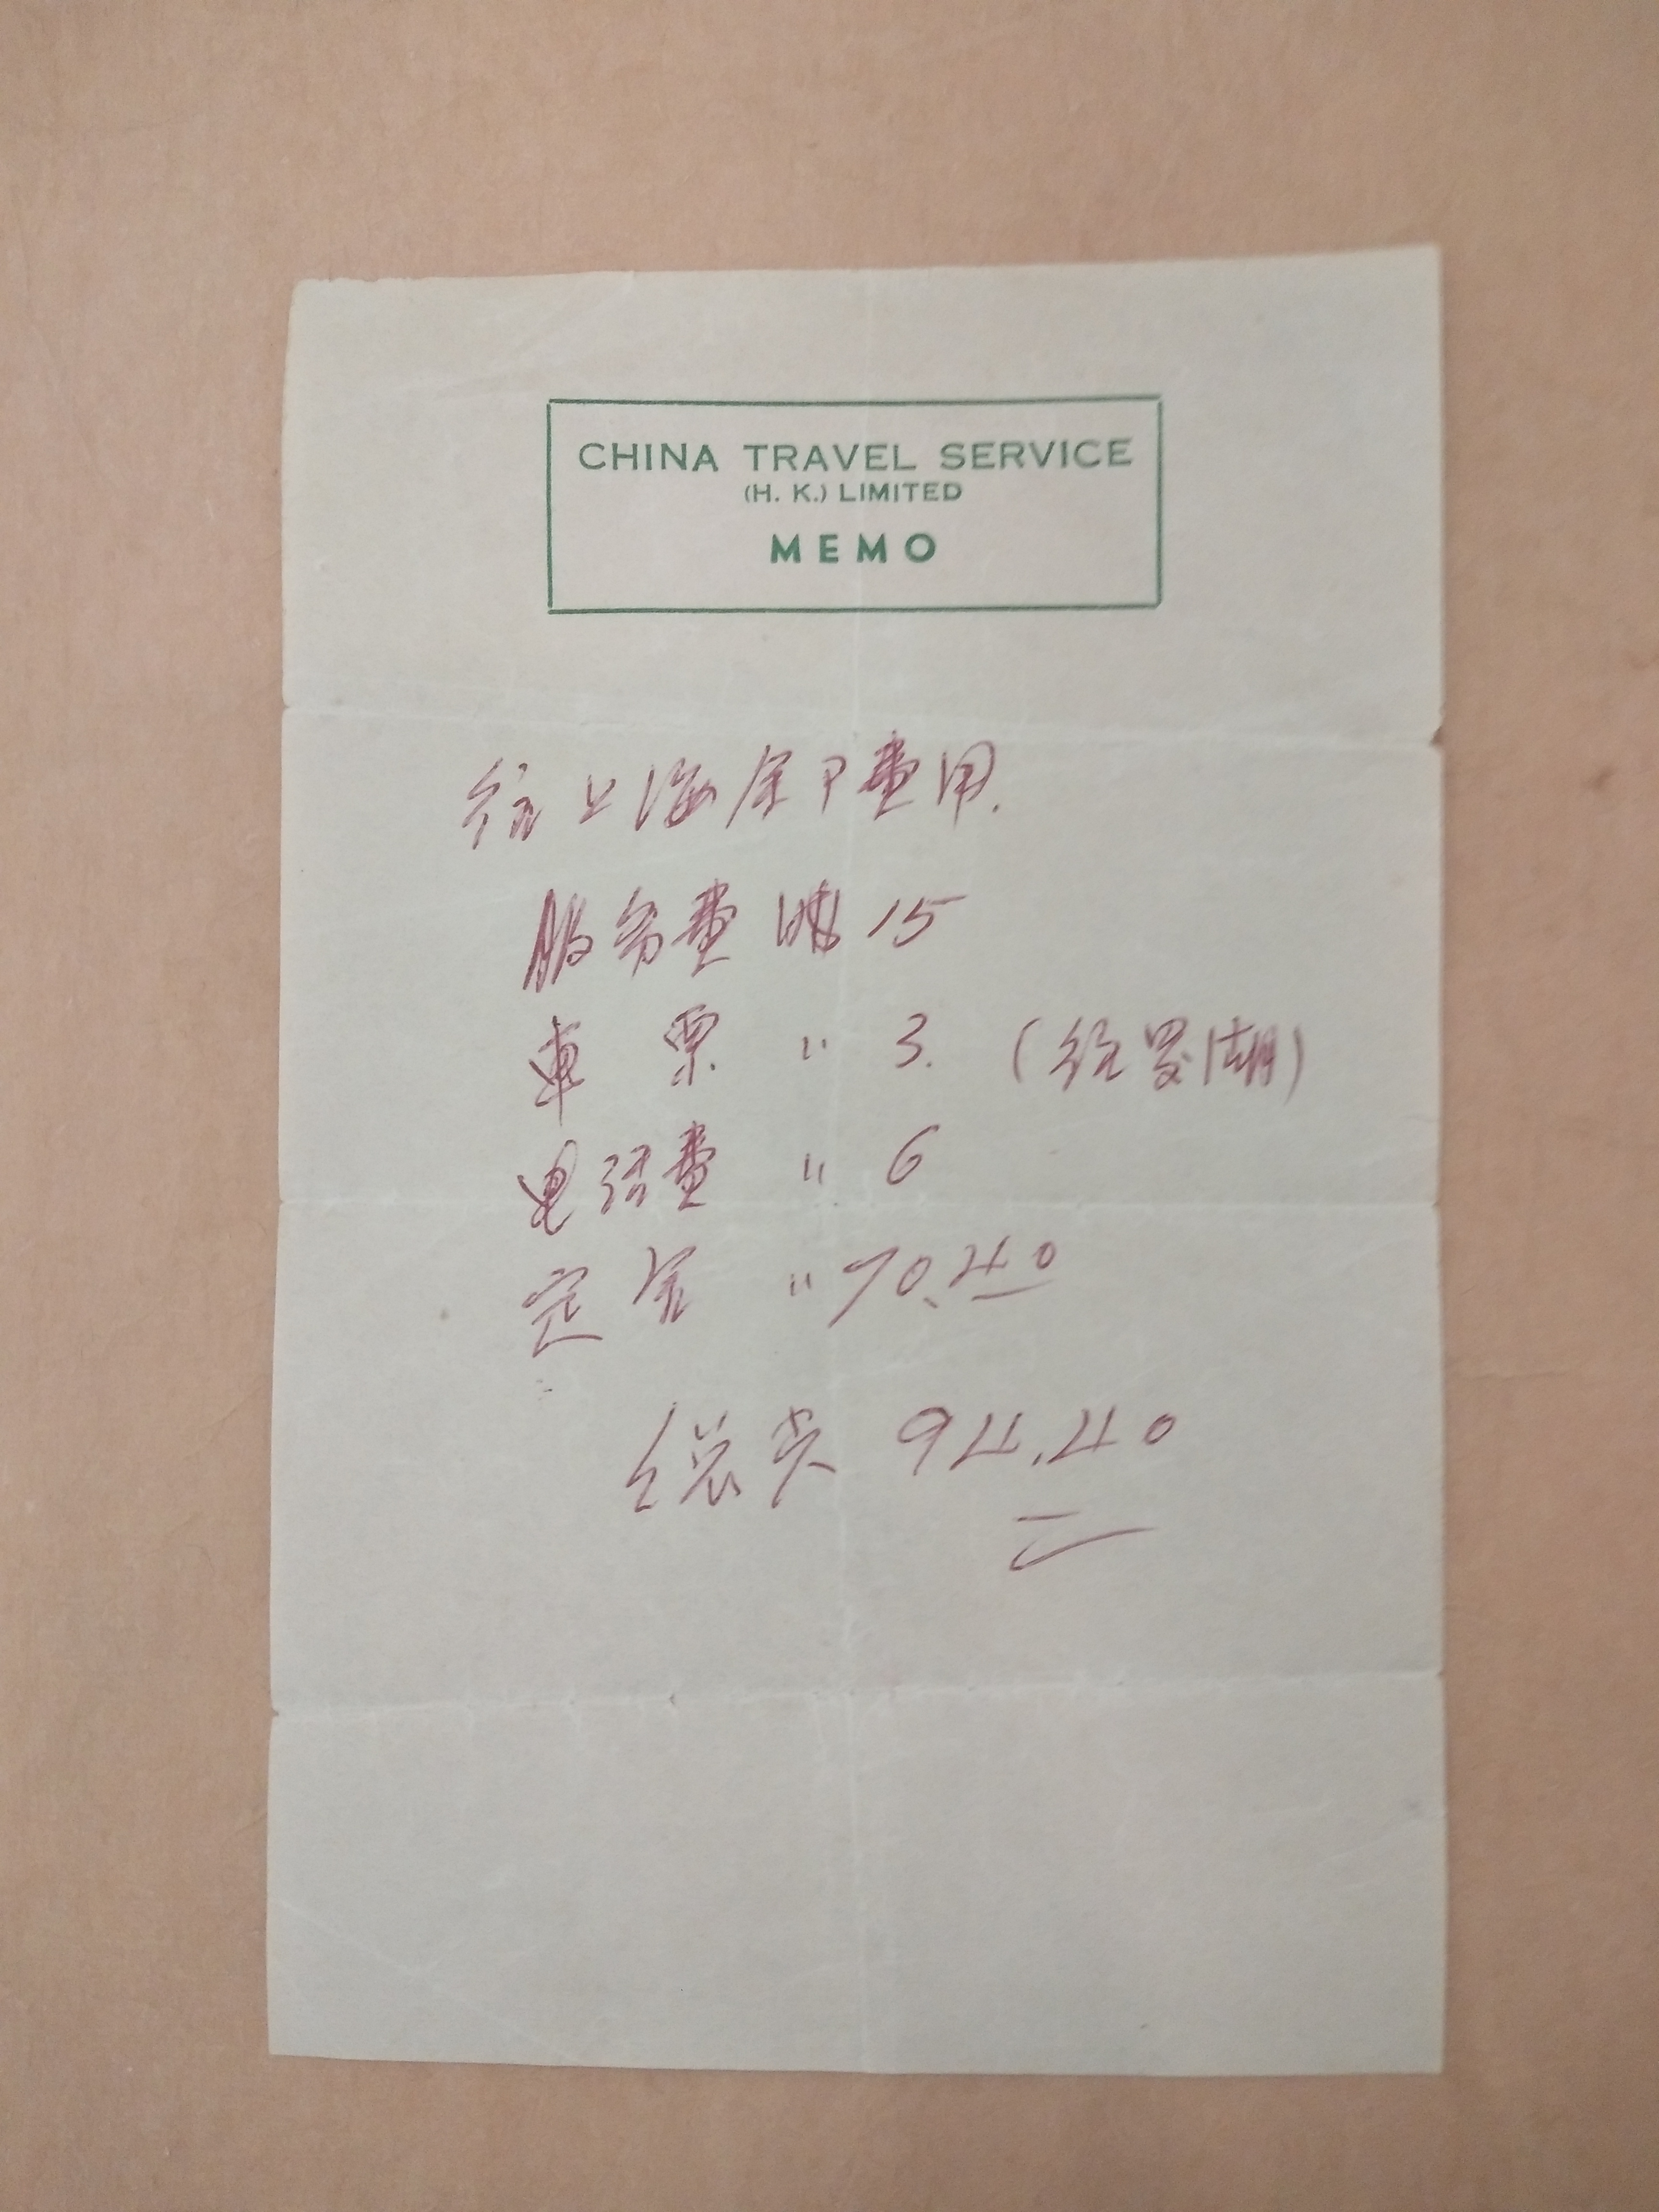 CHINA TRAVEL SERVICE
(H. K.) LIMITED
MEMO
往上海 費用.
服务費 HK$ 15
車票 〃 3. (往罗湖)
电话費 〃 6
定金 〃 70.40
94.40